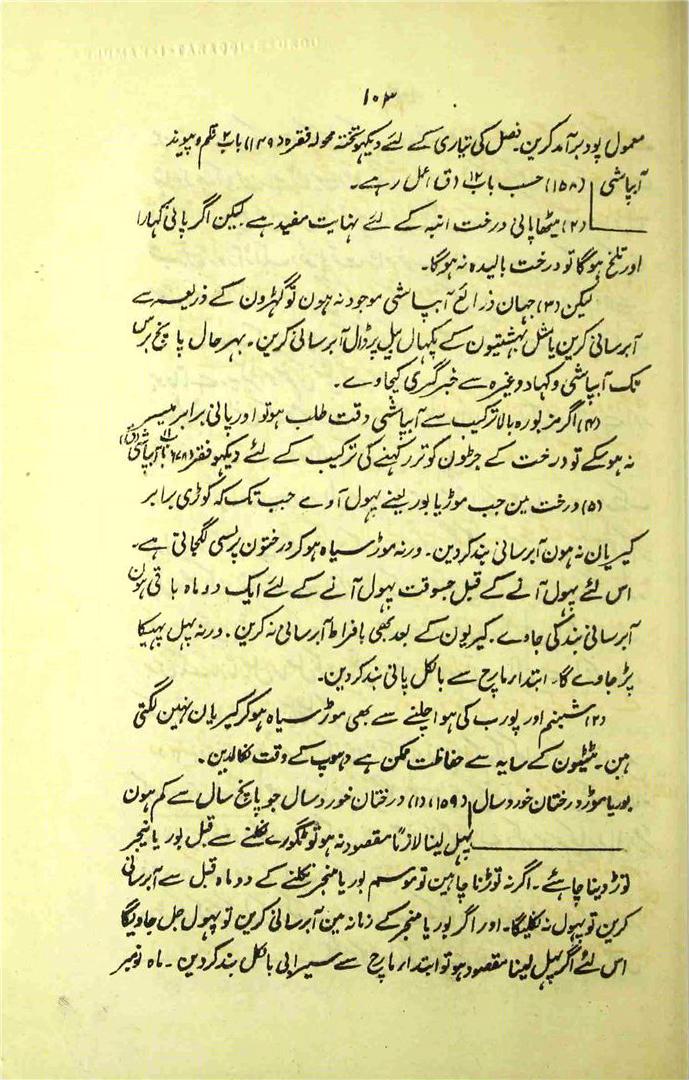 ۱۰۳
معمول پود برآمد کرین۔ فصل کی تیاری کے لئے دیکھو تختہ محولہ فقرہ (۱۴۹) باب ۲ قلم و پیوند
آبپاشی (۱۵۸) حسب باب ۱۲ (ق) عمل رہے۔
(۲) میٹھا پانی درخت انبہ کے لئے نہایت مفید ہے لیکن اگر پانی کہارا
اور تلخ ہوگا تو درخت بالیدہ نہ ہوگا۔
لیکن (۳) جہان ذرائع آبپاشی موجود نہ ہون تو گہڑون کے ذریعہ سے
آبرسانی کرین یا مثل بہشتیون کے پکہال بیل پر ڈال آبرسانی کرین۔ بہرحال پانچ برس
تک آبپاشی و کہاد وغیرہ سے خبرگیری کیجاوے۔
(۴) اگر مزبورہ بالا ترکیب سے آبپاشی دقت طلب ہو تو اور پانی برابر میسر
نہ ہوسکے تو درخت کے جڑون کو تر رکہنے کی ترکیب کے لئے دیکہو فقرہ ۶۷۸ باب ۱۱ آبپاشی (ق)
(۵) درخت مین جب موڑ یا بور یعنے پہول آوے جب تک کہ کوڑی برابر
کیریان نہ ہون آبرسانی بند کردین۔ ورنہ موڑ سیاہ ہوکر درختون پر لسی لگجاتی ہے۔
اس لئے پہول آنے کے قبل جسوقت پہول آنے کے لئے ایک دو ماہ باقی ہون
آبرسانی بند کی جاوے۔ کیریون کے بعد بھی بافراط آبرسانی نہ کرین۔ ورنہ پہل پہیکا
پڑ جاوے گا۔ ابتداء مارچ سے بالکل پانی بند کردین۔
(۲) شبنم اور پورب کی ہوا چلنے سے بھی موڑ سیاہ ہوکر کیریان نہین لگتی
ہین۔ ٹٹیون کے سایہ سے حفاظت ممکن ہے دہوپ کے وقت نکالدین۔
بور یا موڑ درختان خورد سال (۱۵۹) (۱) درختان خورد سال جو پانچ سال سے کم ہون
پہل لینا لازماً مقصود نہ ہو تو نکلنے سے قبل بور یا منجر
توڑ دینا چاہئے۔ اگر نہ توڑنا چاہین تو موسم بور یا منجر نکلنے کے دو ماہ قبل سے آبرسانی
کرین تو پہول نہ نکلیگا۔ اور اگر بور یا منجر کے زمانہ مین آبرسانی کرین تو پہول جل جاویگا
اس لئے اگر پہل لینا مقصود ہو تو ابتداء مارچ سے سیرابی بالکل بند کردین۔ ماہ نومبر